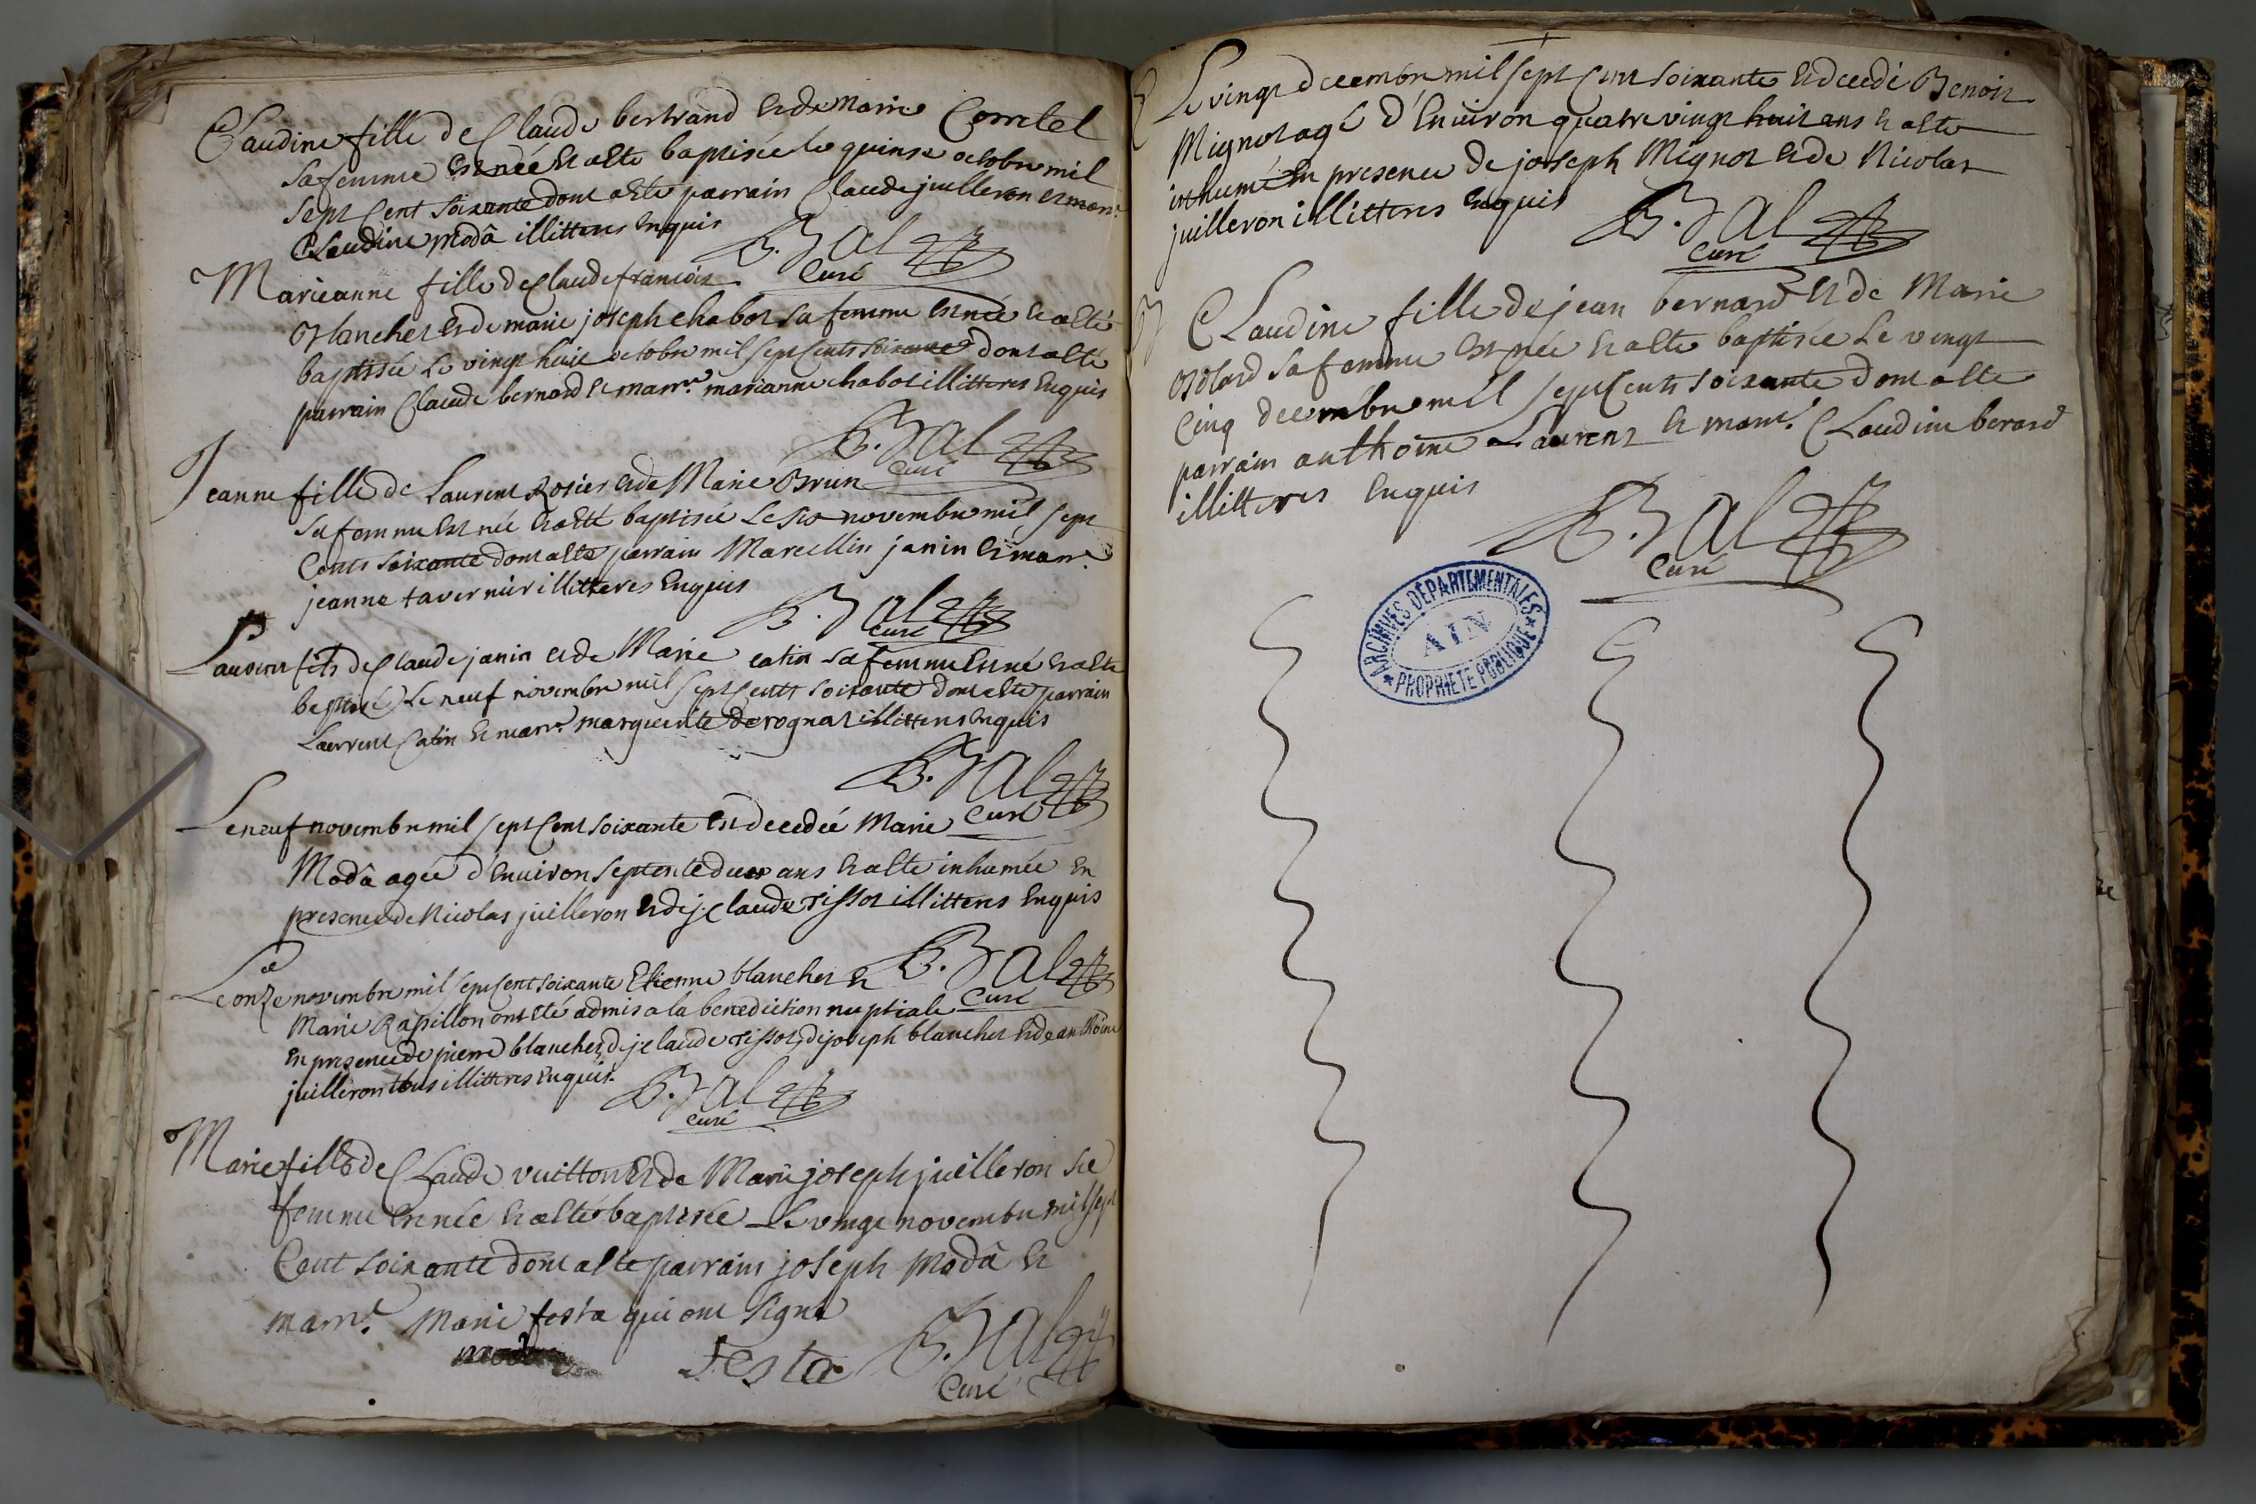 Claudine fille de Claude bertrand et de Marie Corretel
sa femme est née et a esté baptisée le quinse octobre mil
sept Cent soixante dont a esté parrain Claude juilleron et marr.
Claudine modâ illitteres enquis
B. Bal
Curé
Marieanne fille de Claude francois
Blanchet et de marie joseph chabot sa femme est née et a esté
baptisée le vingt huit octobre mil sept Cents soixante dont a esté
parrain Claude bernard et marr.e marianne chabot illitteres enquis
B. Bal
Curé
Jeanne fille de Laurent Rosier et de Marie Brun
sa femme est née et a esté baptisée le six novembre mil sept
Cents soixante dont a esté parrain Marcellin janin et marr.e
jeanne tavernier illitteres enquis
B. Bal
Curé
Laurent fils de Claude janin et de Marie catin sa femme est né et a esté
baptisé le neuf novembre mil sept Cents soixante dont a esté parrain
Laurent Catin et marr.e marguerite derognat illitteres enquis
B. Bal
Curé
Le neuf novembre mil sept Cent soixante est decedée Marie
Modâ agée d'environ septente deux ans et a esté inhumée en
presence de Nicolas juilleron et de j. claude Tissot illitteres enquis
B. Bal
Curé
Le onze novembre mil sept Cent soixante Etienne blanchet et
Marie Rapillon ont eté admis a la benediction nuptiale
en presence de pierre blanchet, de j. claude Tissot, de joseph blanchet et de anthoine
juilleron tous illitteres enquis.
B. Bal
Curé
Marie fille de Claude vuitton et de Marie joseph juilleron sa
femme est née et a esté baptisée Le vingt novembre mil sept
Cent soixante dont a esté parrain joseph Modâ et
marr.e Marie festa qui ont signé
moda
Festa
B. Bal
Curé
Le vingt decembre mil sept Cent soixante est decedé Benoit
Mignot agé d'Environ quatre vingt huit ans et a esté
inhumé en presence de joseph Mignot et de Nicolas
juilleron illitteres enquis
B. Bal
Curé
Claudine fille de jean bernard et de Marie
Bolard sa femme est née et a esté baptisée Le vingt
Cinq decembre mil sept Cents soixante dont a esté
parrain anthoine Laurent et marr.e Claudine berard
illitteres enquis
B. Bal
Curé
ARCHIVES DÉPARTEMENTALES
AIN
PROPRIÉTÉ PUBLIQUE